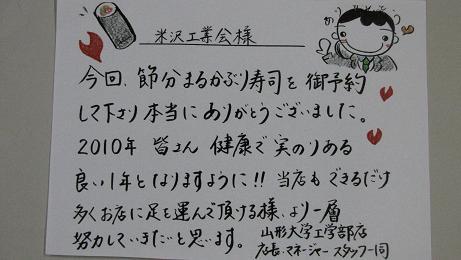 米沢工業会様
今回、節分まるかぶり寿司を御予約
して下さり本当にありがとうございました。
2010年 皆さん 健康で実のりある
良い1年となりますように!! 当店もできるだけ
多くお店に足を運んで頂ける様、より一層
努力していきたいと思います。
山形大学工学部店
店長、マネージャー スタッフ一同